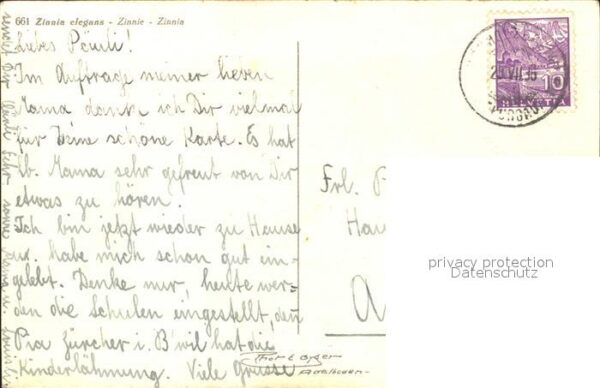 661 Zinnia elegans - Zinnie - Zinnia
Liebes Päuli!
Im Auftrage meiner lieben
Mama danke ich Dir vielmal
für Deine schöne Karte. Es hat
lb. Mama sehr gefreut von Dir
etwas zu hören.
Ich bin jetzt wieder zu Hause
u. habe mich schon gut ein-
gelebt. Denke nur, heute wer-
den die Schulen eingestellt, denn
Pia Zürcher i. B'wil hat die
Kinderlähmung. Viele Grüsse
HELVETIA
10
VII 36
Frl. P
Hau
A
privacy protection
Datenschutz